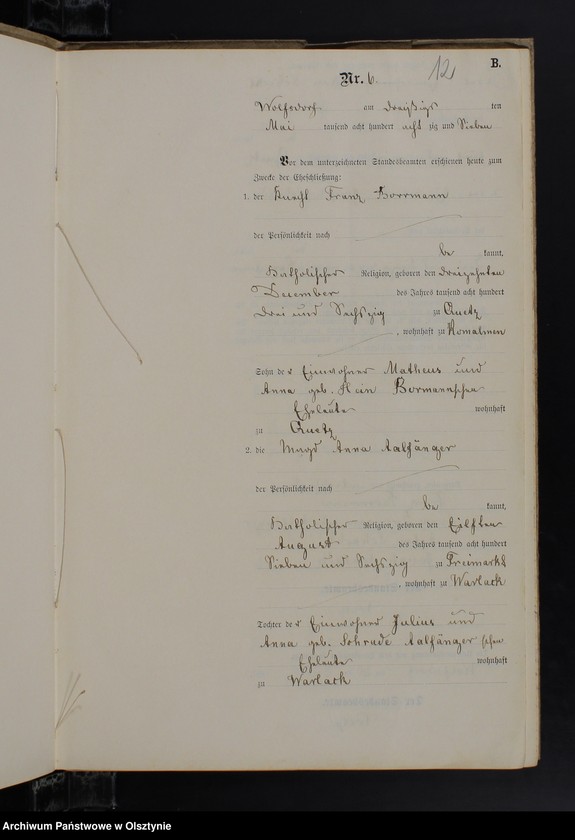 12
B.
Nr. 6.
Wolfsdorf am dreißigsten
Mai tausend acht hundert acht zig und Sieben
Vor dem unterzeichneten Standesbeamten erschienen heute zum
Zwecke der Eheschließung:
1. der Knecht Franz Borrmann
der Persönlichkeit nach
be kannt,
Katholischer Religion, geboren den dreizehnten
December des Jahres tausend acht hundert
drei und Sechszig zu Quetz
, wohnhaft zu Komalmen
Sohn der Einwohner Matheus und
Anna geb. Bormannschen
Eheleute wohnhaft
zu Quetz
2. die Magd Anna Aalfänger
der Persönlichkeit nach
be kannt,
Katholischer Religion, geboren den Eilften
August des Jahres tausend acht hundert
Sieben und Sechszig zu Freimarkt
, wohnhaft zu Warlack
Tochter der Einwohner Julius und
Anna geb. Schrade Aalfänger schen
Eheleute wohnhaft
zu Warlack
Archiwum Państwowe w Olsztynie